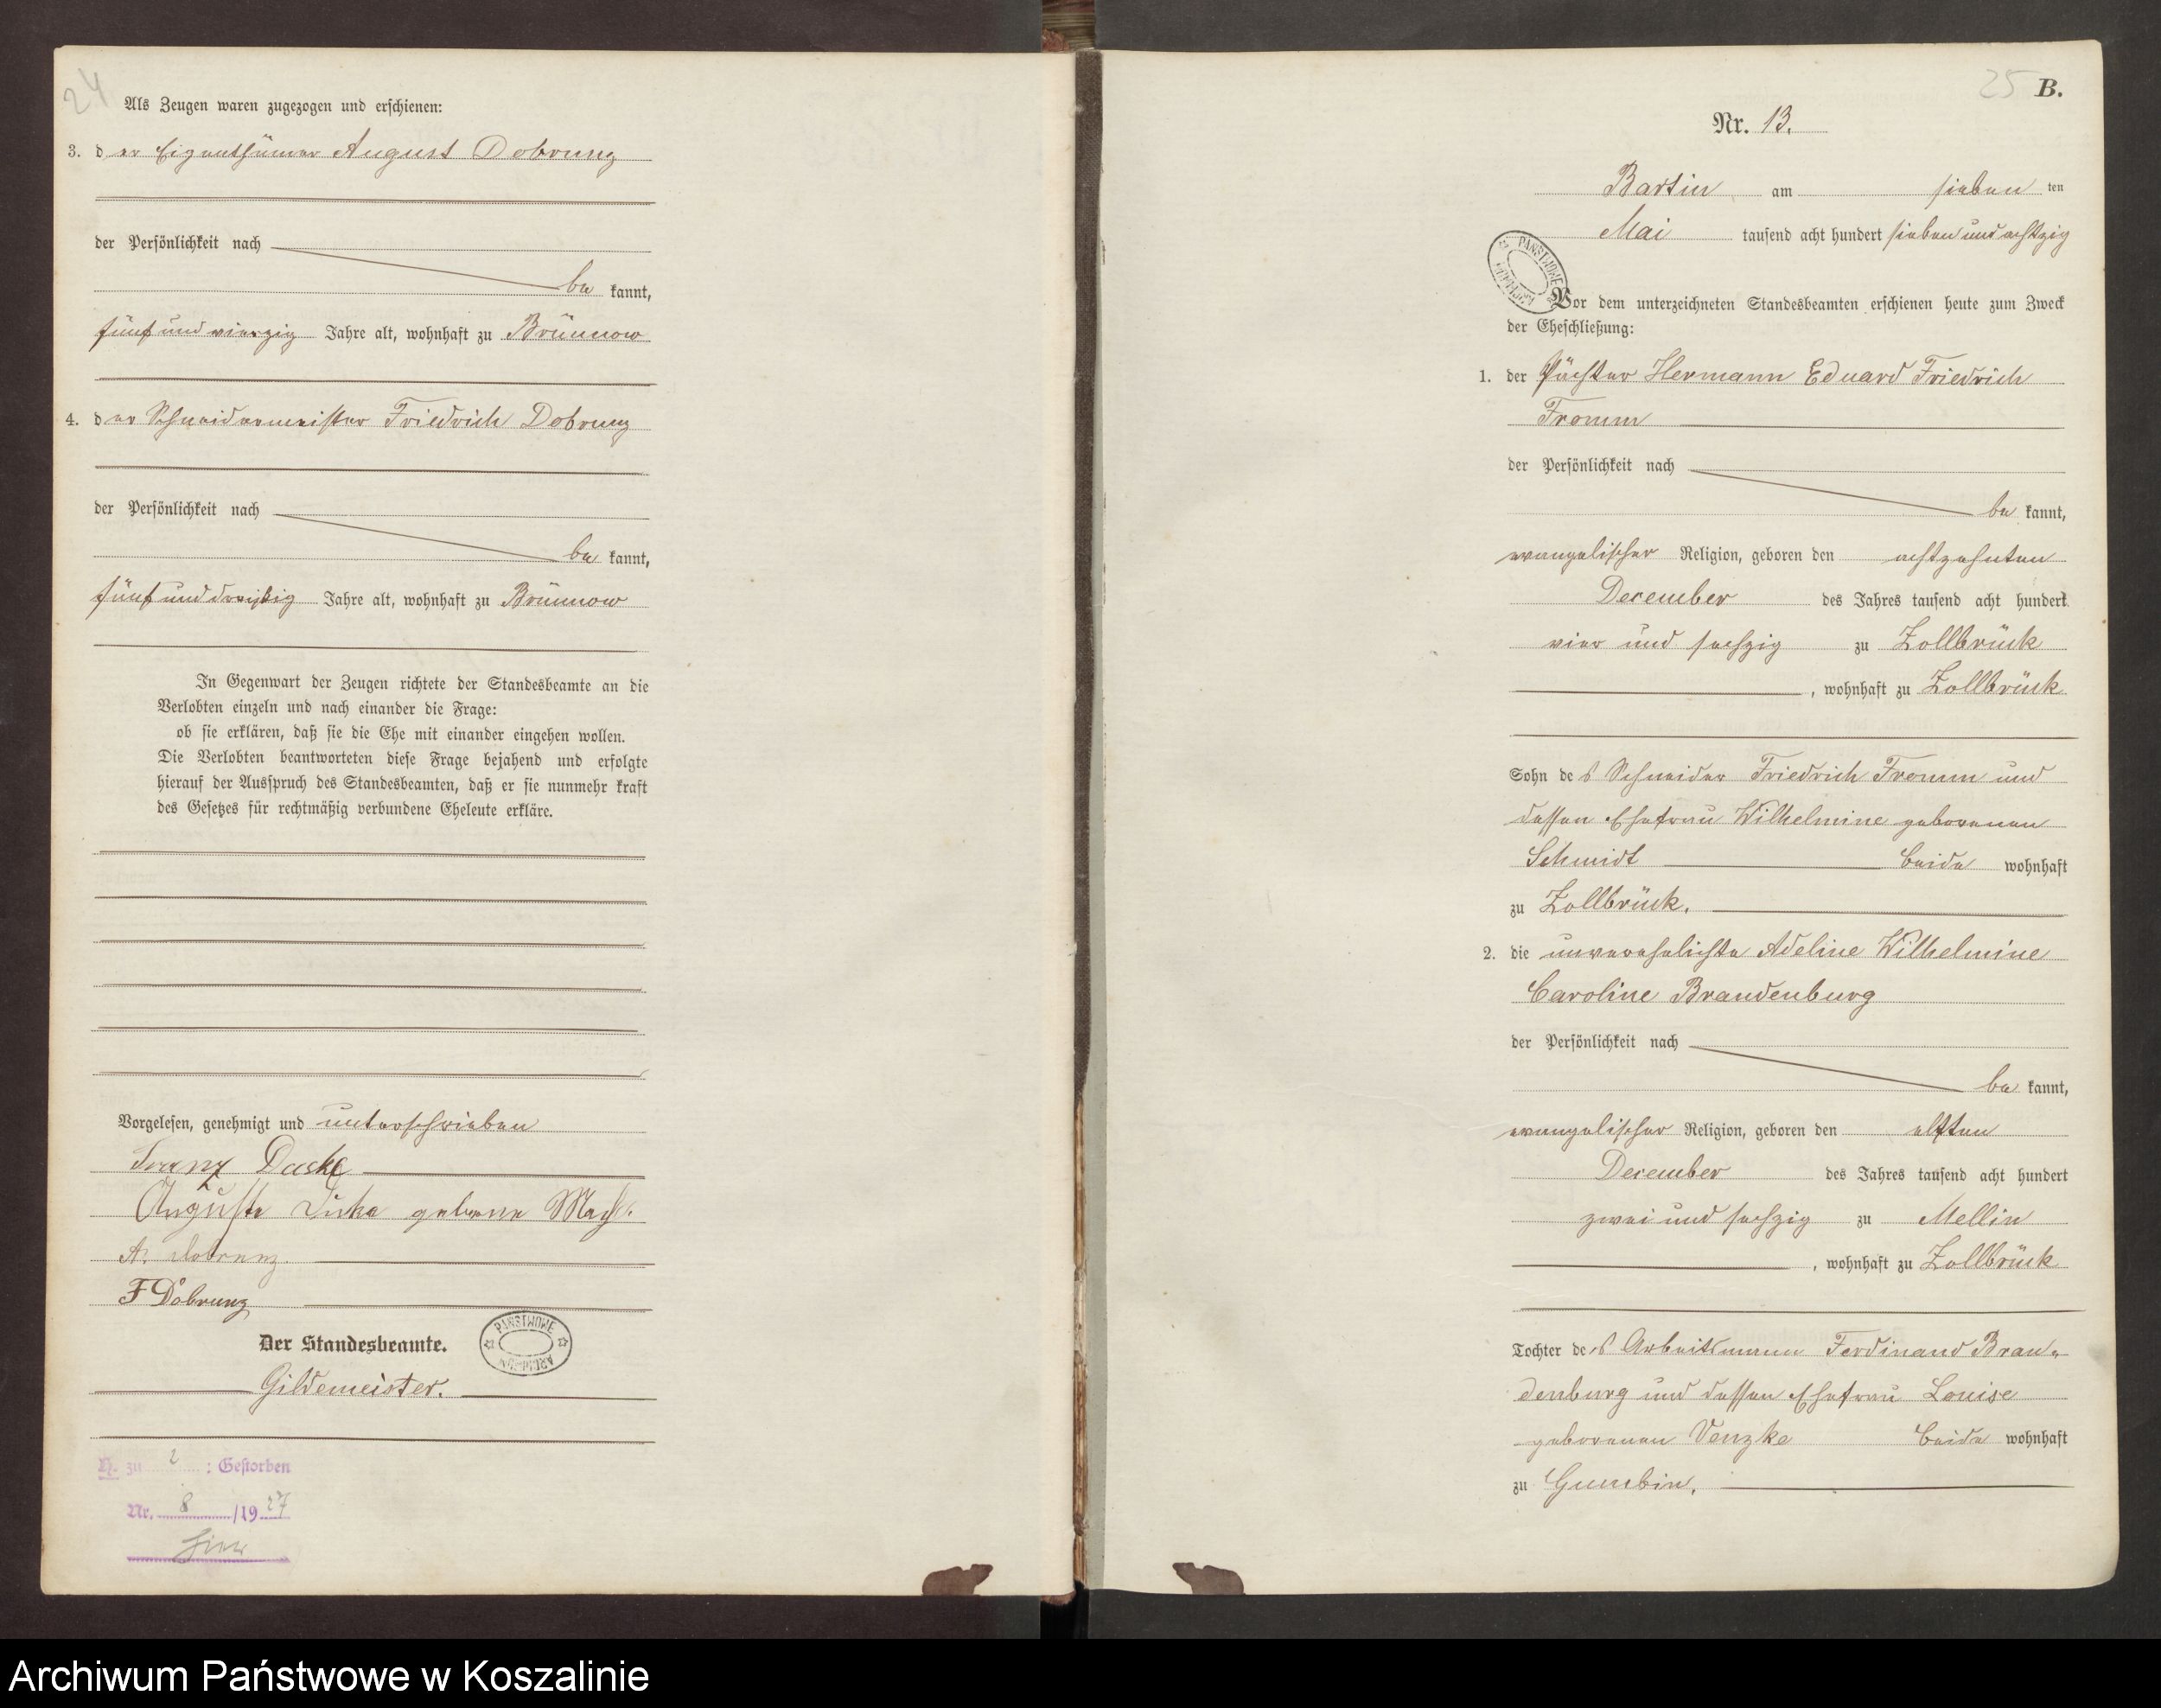 24
Als Zeugen waren zugezogen und erschienen:
3. der Eigenthümer August Dobrunz
der Persönlichkeit nach
be kannt,
fünf und vierzig Jahre alt, wohnhaft zu Brünnow
4. der Schneidermeister Friedrich Dobrunz
der Persönlichkeit nach
be kannt,
fünf und dreißig Jahre alt, wohnhaft zu Brünnow
In Gegenwart der Zeugen richtete der Standesbeamte an die
Verlobten einzeln und nach einander die Frage:
ob sie erklären, daß sie die Ehe mit einander eingehen wollen.
Die Verlobten beantworteten diese Frage bejahend und erfolgte
hierauf der Ausspruch des Standesbeamten, daß er sie nunmehr kraft
des Gesetzes für rechtmäßig verbundene Eheleute erkläre.
Vorgelesen, genehmigt und unterschrieben
Franz
Auguste geborne
A. Dobrunz.
F Dobrunz
Der Standesbeamte.
Gildemeister.
PAŃSTWOWE ARCHIWUM
H. zu 2 : Gestorben
Nr. 8 /1927
hier
25 B.
Nr. 13.
Bartin am sieben ten
Mai tausend acht hundert sieben und achtzig
PAŃSTWOWE ARCHIWUM
Vor dem unterzeichneten Standesbeamten erschienen heute zum Zweck
der Eheschließung:
1. der Pächter Hermann Eduard Friedrich
Fromm
der Persönlichkeit nach
be kannt,
evangelischer Religion, geboren den achtzehnten
December des Jahres tausend acht hundert
vier und sechzig zu Zollbrück
, wohnhaft zu Zollbrück
Sohn des Schneider Friedrich Fromm und
dessen Ehefrau Wilhelmine geborenen
Schmidt beide wohnhaft
zu Zollbrück.
2. die unverehelichte Adeline Wilhelmine
Caroline Brandenburg
der Persönlichkeit nach
be kannt,
evangelischer Religion, geboren den elften
December des Jahres tausend acht hundert
zwei und sechzig zu Mellin
, wohnhaft zu Zollbrück
Tochter des Arbeitsmann Ferdinand Bran-
denburg und dessen Ehefrau Louise
geborenen Venzke beide wohnhaft
zu Gumbin.
Archiwum Państwowe w Koszalinie